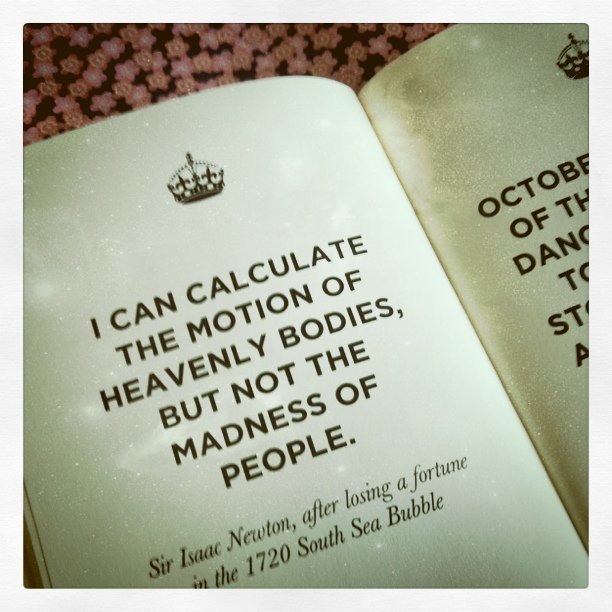 I CAN CALCULATE
THE MOTION OF
HEAVENLY BODIES,
BUT NOT THE
MADNESS OF
PEOPLE.
Sir Isaac Newton, after losing a fortune
in the 1720 South Sea Bubble
OCTOBE
OF TH
DANG
TO
STO
A